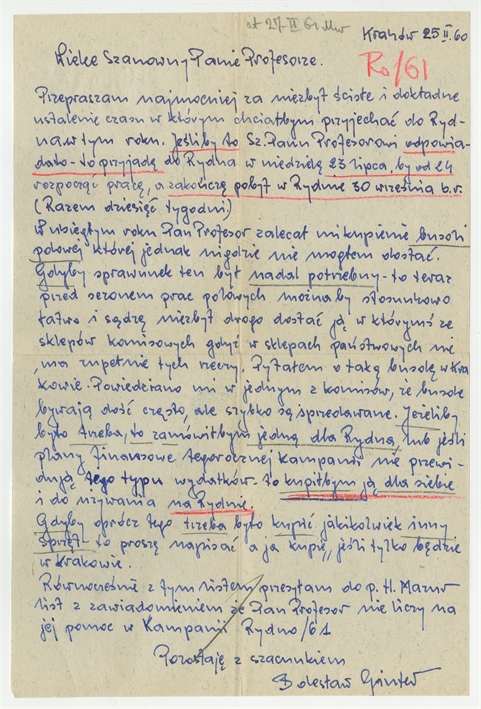 27-II 61
Kraków 25 II. 60
Ro/61
Wielce Szanowny Panie Profesorze.
Przepraszam najmocniej za niezbyt ścisłe i dokładne
ustalenie czasu w którym chciałbym przyjechać do Ryd-
na w tym roku. Jeśliby to Sz. Panu Profesorowi odpowia-
dało - to przyjadę do Rydna w niedzielę 23 lipca, by od 24
rozpocząć pracę, a zakończę pobyt w Rydnie 30 września b.r.
(Razem dziesięć tygodni)
W ubiegłym roku Pan Profesor zalecał mi kupienie busoli
polowej której jednak nigdzie nie mogłem dostać.
Gdyby sprawunek ten był nadal potrzebny - to teraz
przed sezonem prac polowych możnaby stosunkowo
łatwo i sądzę niezbyt drogo dostać ją w którymś ze
sklepów komisowych gdyż w sklepach państwowych nie
ma zupełnie tych rzeczy. Pytałem o taką busolę w Kra
kowie. Powiedziano mi w jednym z komisów, że busole
bywają dość często, ale szybko są sprzedawane. Jeżeliby
było trzeba, to zamówiłbym jedną dla Rydna, lub jeśli
plany finansowe tegorocznej kampanii nie przewi-
dują tego typu wydatków. to kupiłbym ją dla siebie
i do używania na Rydnie.
Gdyby oprócz tego trzeba było kupić jakikolwiek inny
sprzęt to proszę napisać a ja kupię, jeśli tylko będzie
w Krakowie.
Równocześnie z tym listem przesyłam do p. H. Mazur
list z zawiadomieniem że Pan Profesor nie liczy na
jej pomoc w Kampanii Rydno/61
Pozostaję z szacunkiem
Bolesław Ginter